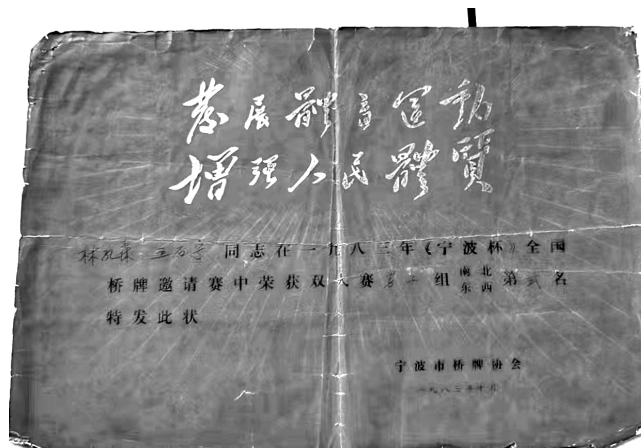 發展體育運動
增强人民體質
同志在一九八三年《宁波杯》全国
桥牌邀请赛中荣获双人赛男子组南北东西第弍名
特发此状
宁波市桥牌协会
一九八三年十月